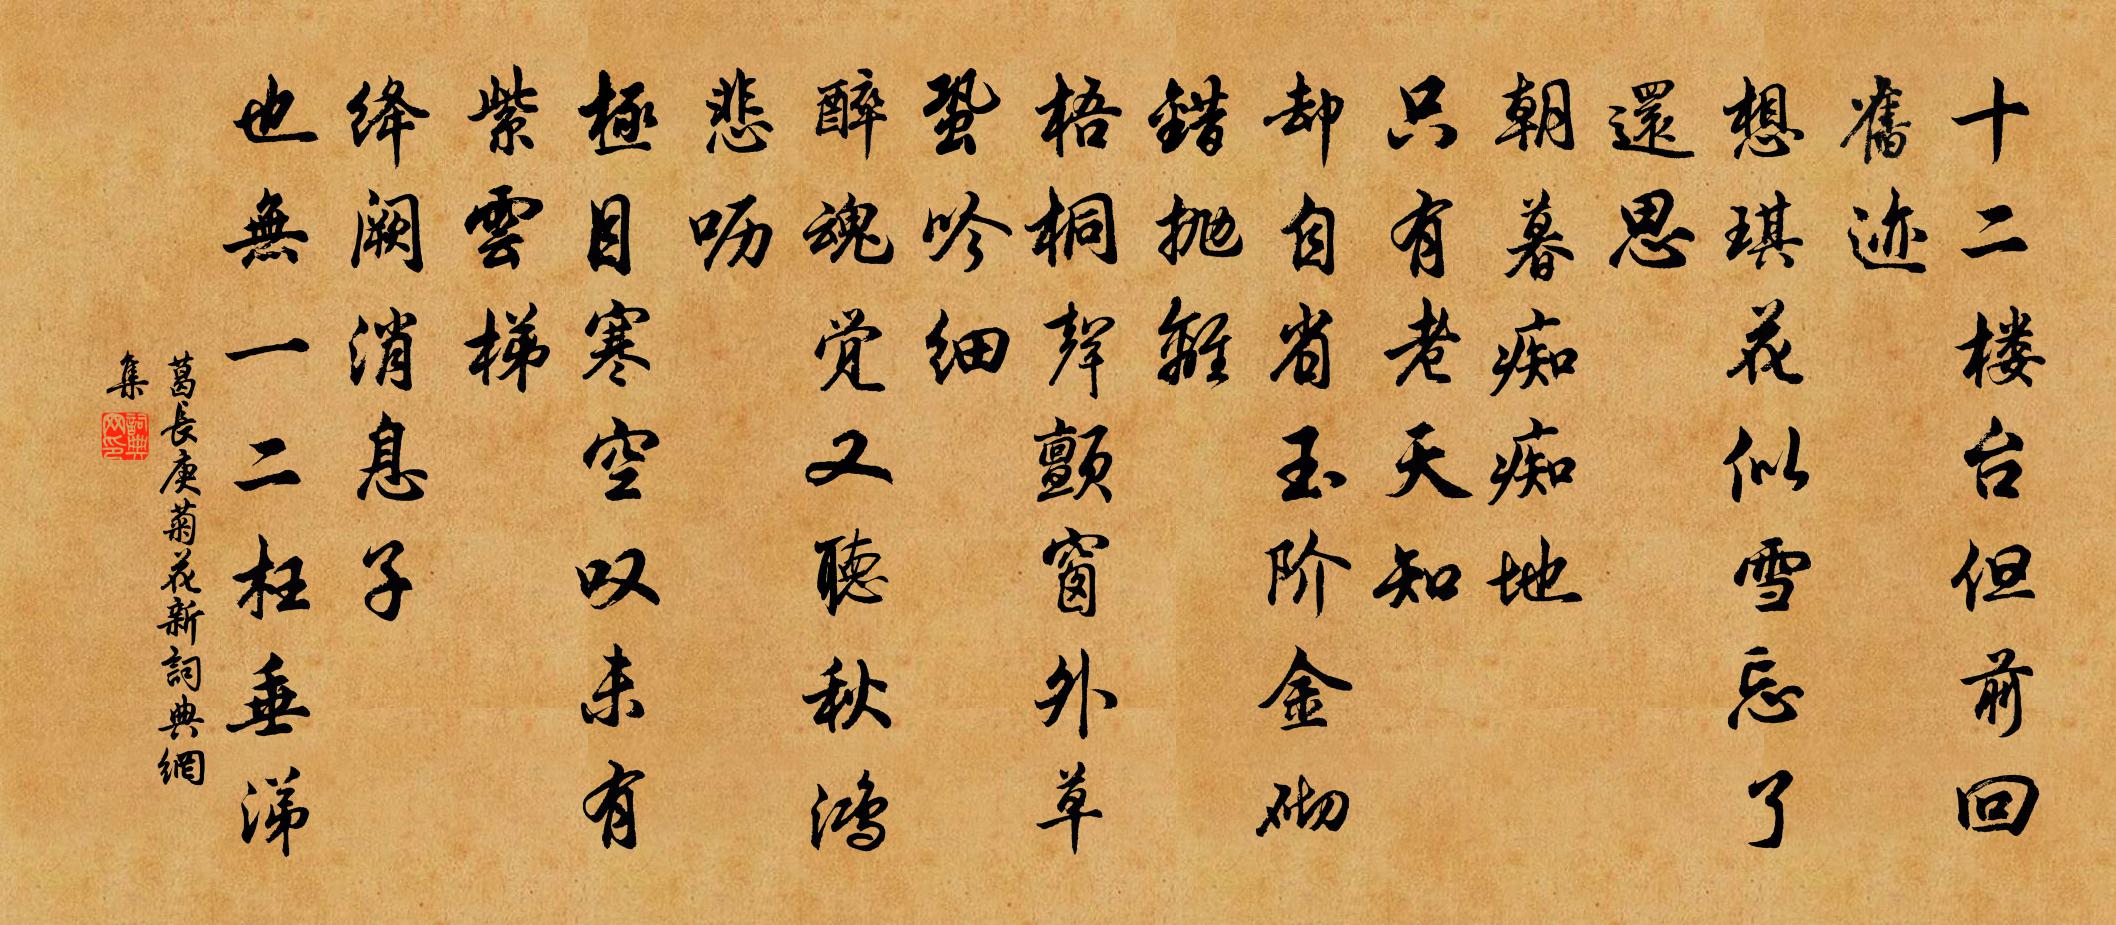 十二楼台但前回
舊迹
想琪花似雪忘了
還思
朝暮痴痴地
只有老天知
却自省玉阶金砌
錯抛離
梧桐聲顫窗外草
蛩吟细
醉魂觉又聽秋鸿
悲呖
極目寒空叹未有
紫雲梯
绛阙消息子
也無一二枉垂涕
葛長庚菊花新詞典網
集
詞典網印